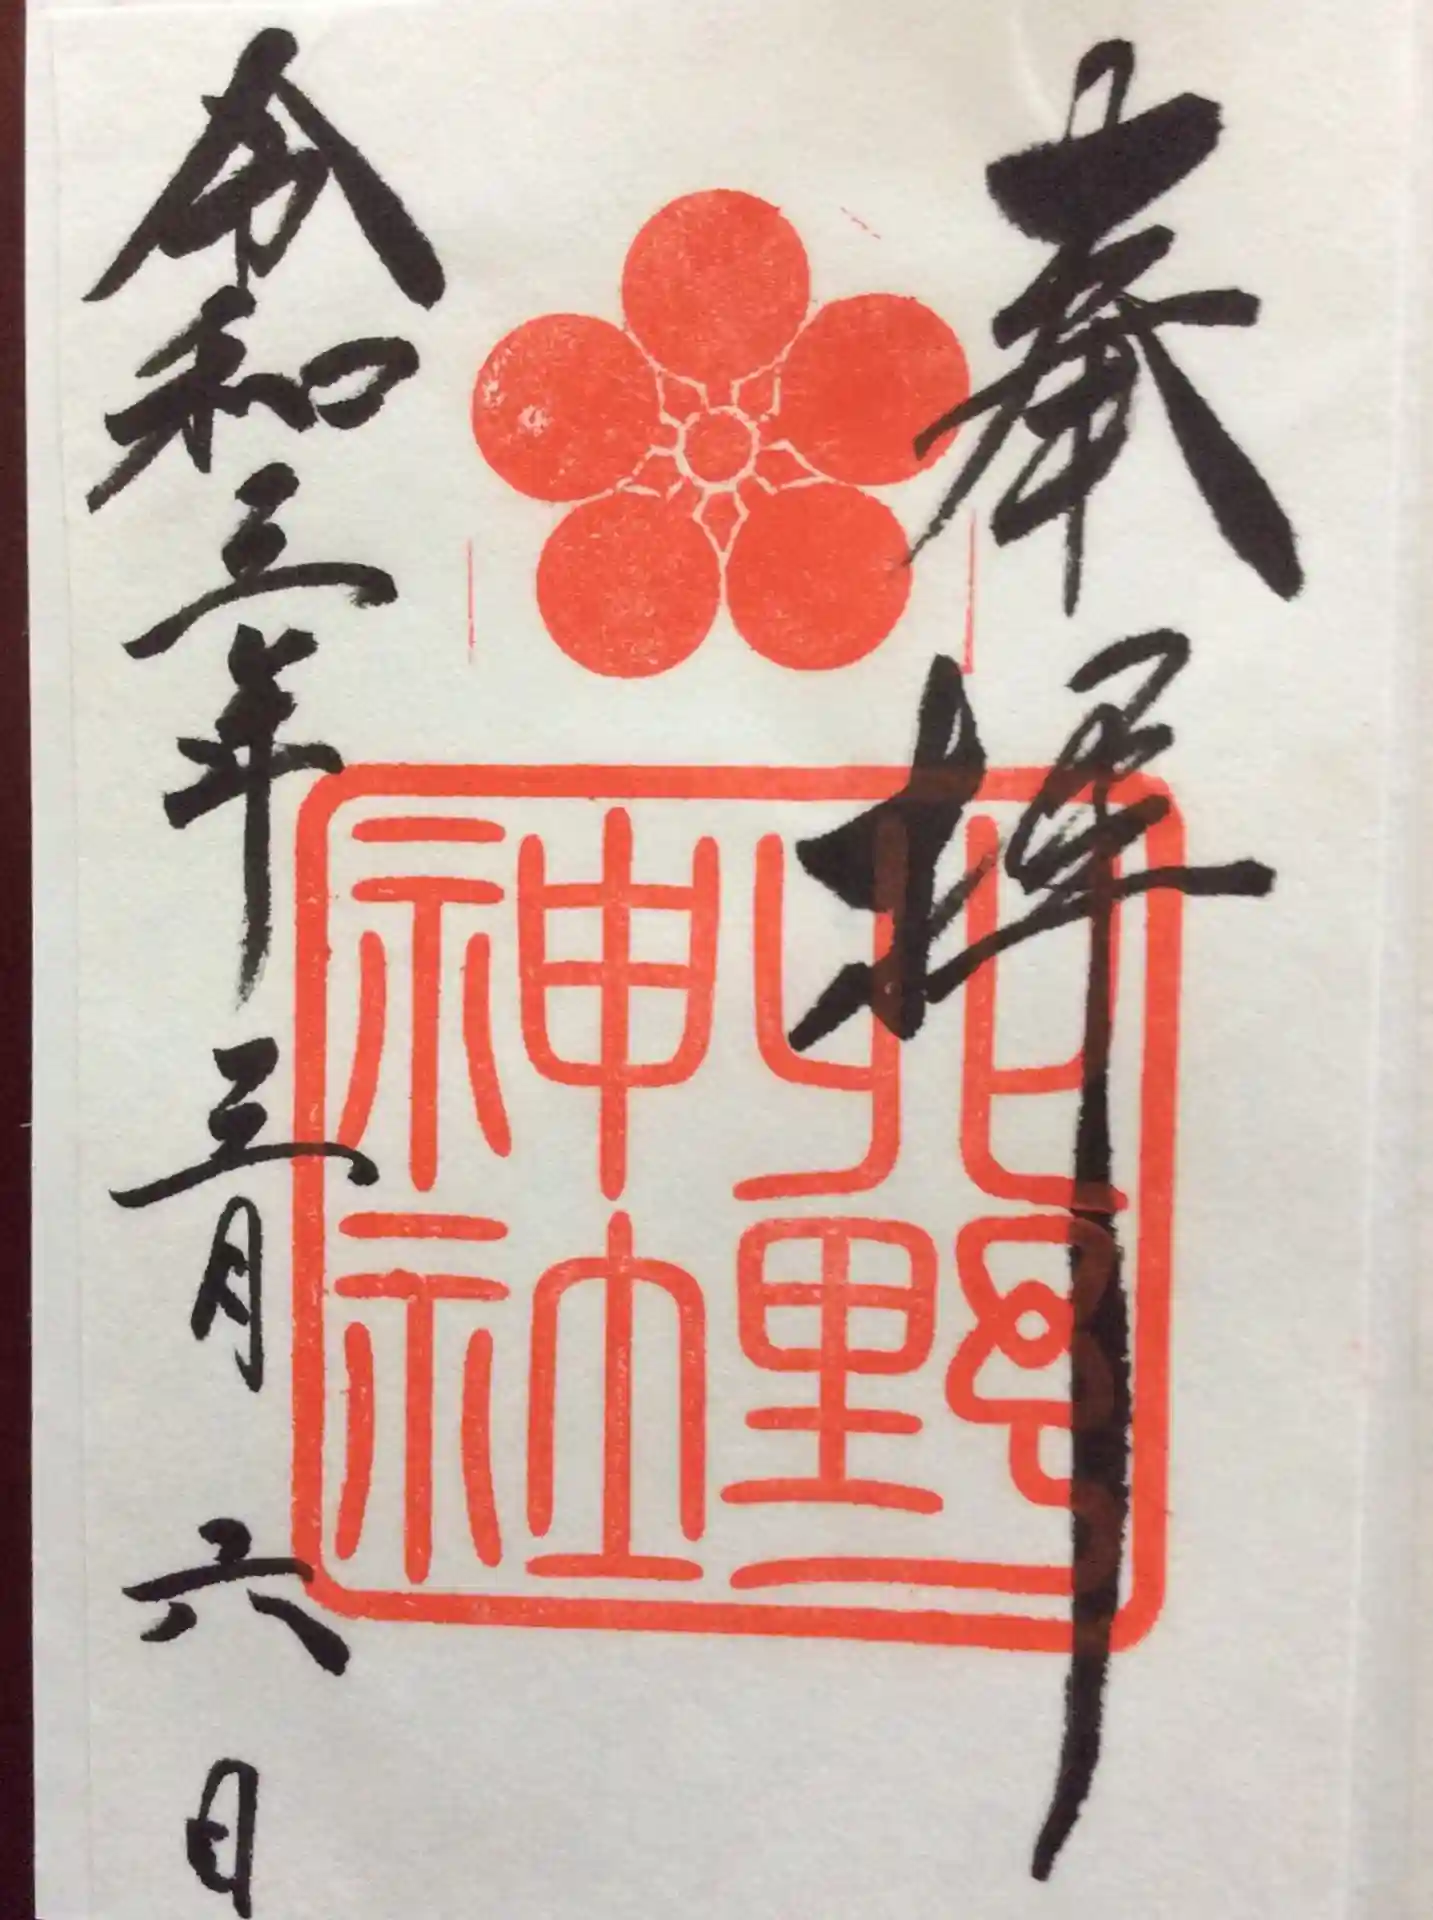 奉拝
北野
神社
令和三年三月六日